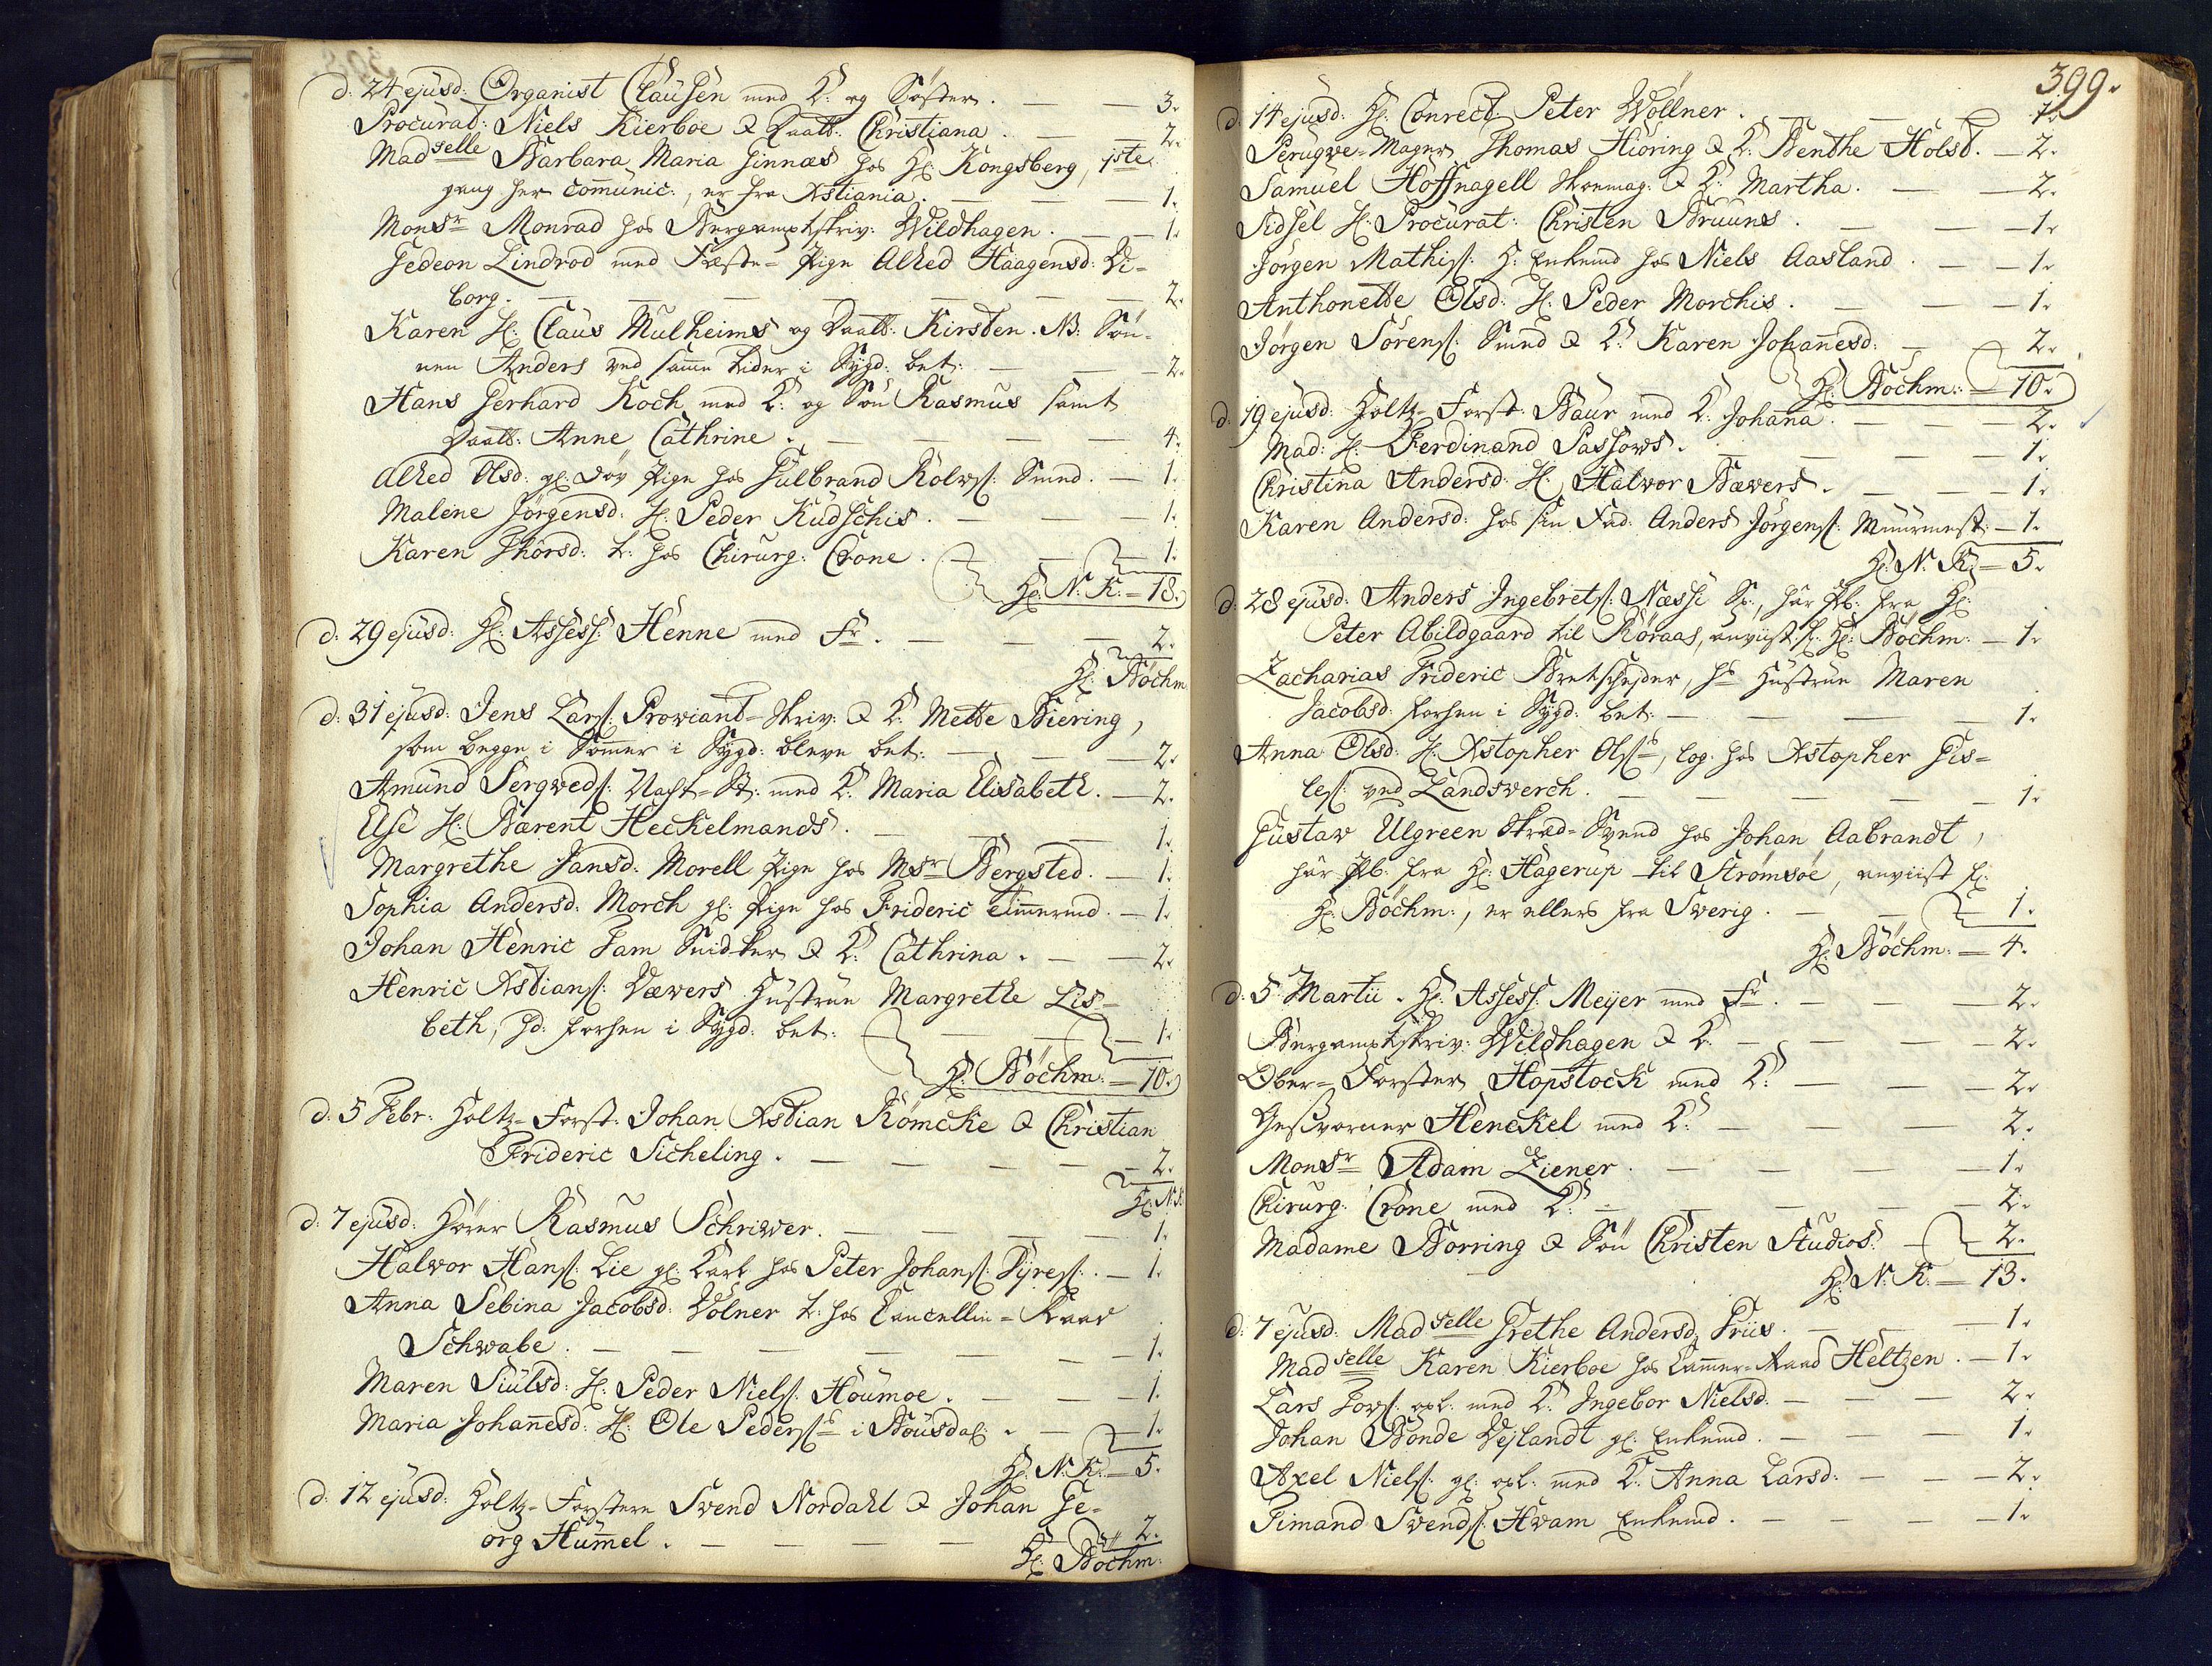 d: 24 ejusd: Organist Clausen med K: og Söster. — — 3.
Procurat: Niels Kierboe & Daatt: Christiana. — 2.
Madselle Barbara Maria Ginnæs hos Hr: Kongsberg, 1ste
gang her com̅unic:, er fra Xstiania. — — — 1.
Monsr Monrad hos Bergamptskriv: Wildhagen. — — 1.
Gedeon Lindrod med Fæste-Pige Alhed Haagensd: Vi-
borg. — — — — — — — 2.
Karen H: Claus Mulheims og Daatt: Kirsten. NB. Sön-
nen Anders ved sam̅e tider i Sygd: bet: — — — 2.
Hans Gerhard Koch med K: og Sön Rasmus samt
Daatt: Anne Cathrine. — — — — 4.
Alhed Olsd: gl: Döv Pige hos Gulbrand Kolbs: Smed. — 1.
Malene Jörgensd: H: Peder Kudschis. — — — 1.
Karen Thorsd: t: hos Chirurg: Crone. — — 1.
Hr: N. K. = 18.
d: 29 ejusd: Hr: Assess: Henne med Fr. — — — 2.
Hr: Böchm.
d: 31 ejusd: Jens Lars: Proviant-Skriv: & K: Mette Biering,
som begge i Som̅er i Sygd: bleve bet: — — — 2.
Amund Sergveds: Nagt-St: med K: Maria Elisabeth. — 2.
Else H: Barent Heckelmands. — — — 1.
Margrethe Jansd: Morell Pige hos Msr Bergsted. — 1.
Sophia Andersd: Morch gl: Pige hos Frideric Tim̅ermd. — 1.
Johan Henric Fam Snidker & K: Cathrina. — — 2.
Henric Xstians: Vævers Hustrue Margrethe Lis-
beth, Hd: forhen i Sygd: bet: — — 1.
Hr: Böchm: = 10.
d: 5 Febr: Holtz-Forst: Johan Xstian Römcke & Christian
Frideric Sicheling. — — — — — 2.
Hr: N. K.
d: 7 ejusd: Hörer Rasmus Schriwer. — — — — 1.
Halvor Hans: Lie gl: Karl hos Peter Johans: Dyres: — 1.
Anna Sebina Jacobsd: Völner t: hos Cancellie-Raad
Schwabe. — — — — — — — 1.
Maren Siulsd: H: Peder Niels: Houmoe. — — 1.
Maria Johan̅esd: H: Ole Peders: i Böusdal: — — 1.
Hr: N. K. = 5.
d: 12 ejusd: Holtz-Forstere Svend Nordahl & Johan Ge-
org Hum̅el. — — — — 2.
Hr: Böchm:
399.
d: 14 ejusd: Hr: Conrect Peter Wöllner. — — — 1.
Peruqve-Mager Thomas Hiöring & K: Benthe Holst. — 2.
Samuel Hoffnagell Skoemag: & K: Martha. — — 2.
Sidsel H: Procurat: Christen Bruuns. — — — 1.
Jörgen Mathis: H: Enkemd hos Niels Aasland. — — 1.
Anthonette Olsd: H: Peder Morchis. — — — 1.
Jörgen Sörens: Smed & K: Karen Johan̅esd: — — 2.
Hr: Böchm: = 10.
d: 19 ejusd: Holtz-Forst: Baur med K: Johan̅a. — — — 2.
Mad: H: Ferdinand Passows. — — — — 1.
Christina Andersd: H: Halvor Bævers. — — — 1.
Karen Andersd: hos sin Fad: Anders Jörgens: Muurmest: — 1.
Hr: N. K. = 5.
d: 28 ejusd: Anders Ingebrets: Næsse St:, har Pb: fra Hr:
Peter Abildgaard til Röraas, anviist f: Hr: Böchm: — 1.
Zacharias Frideric Bretschejder, hs Hustrue Maren
Jacobsd: forhen i Sygd: bet: — — — — 1.
Anna Olsd: H: Xstopher Ols:, log. hos Xstopher Gis-
les: ved Landsverch. — — — — — 1.
Gustav Ulgreen Skræd-Svend hos Johan Aabrandt,
har Pb: fra Hr: Hagerup til Strömsöe, anviist f:
Hr: Böchm:, er ellers fra Sverig. — — 1.
Hr: Böchm: = 4.
d: 5 Martii. Hr: Assess: Meyer med Fr. — — — 2.
Bergamptskriv: Wildhagen & K: — — — — 2.
Ober-Forster Hopstock med K: — — — 2.
Geschworner Henckel med K: — — — 2.
Monsr Adam Ziener. — — — — 1.
Chirurg: Crone med K: — — — — 2.
Madame Borring & Sön Christen Studios: — 2.
Hr: N. K. = 13.
d: 7 ejusd: Madselle Grethe Andersd: Friis. — — — 1.
Madselle Karen Kierboe hos Cam̅er-Raad Heltzen. — 1.
Lars Tovs: opl: med K: Ingebor Nielsd. — — — 2.
Johan Bonde Vejlandt gl: Enkemd. — — — 1.
Axel Niels: gl: opl: med K: Anna Larsd: — — — 2.
Timand Svends: Hvam Enkemd. — — — — 1.